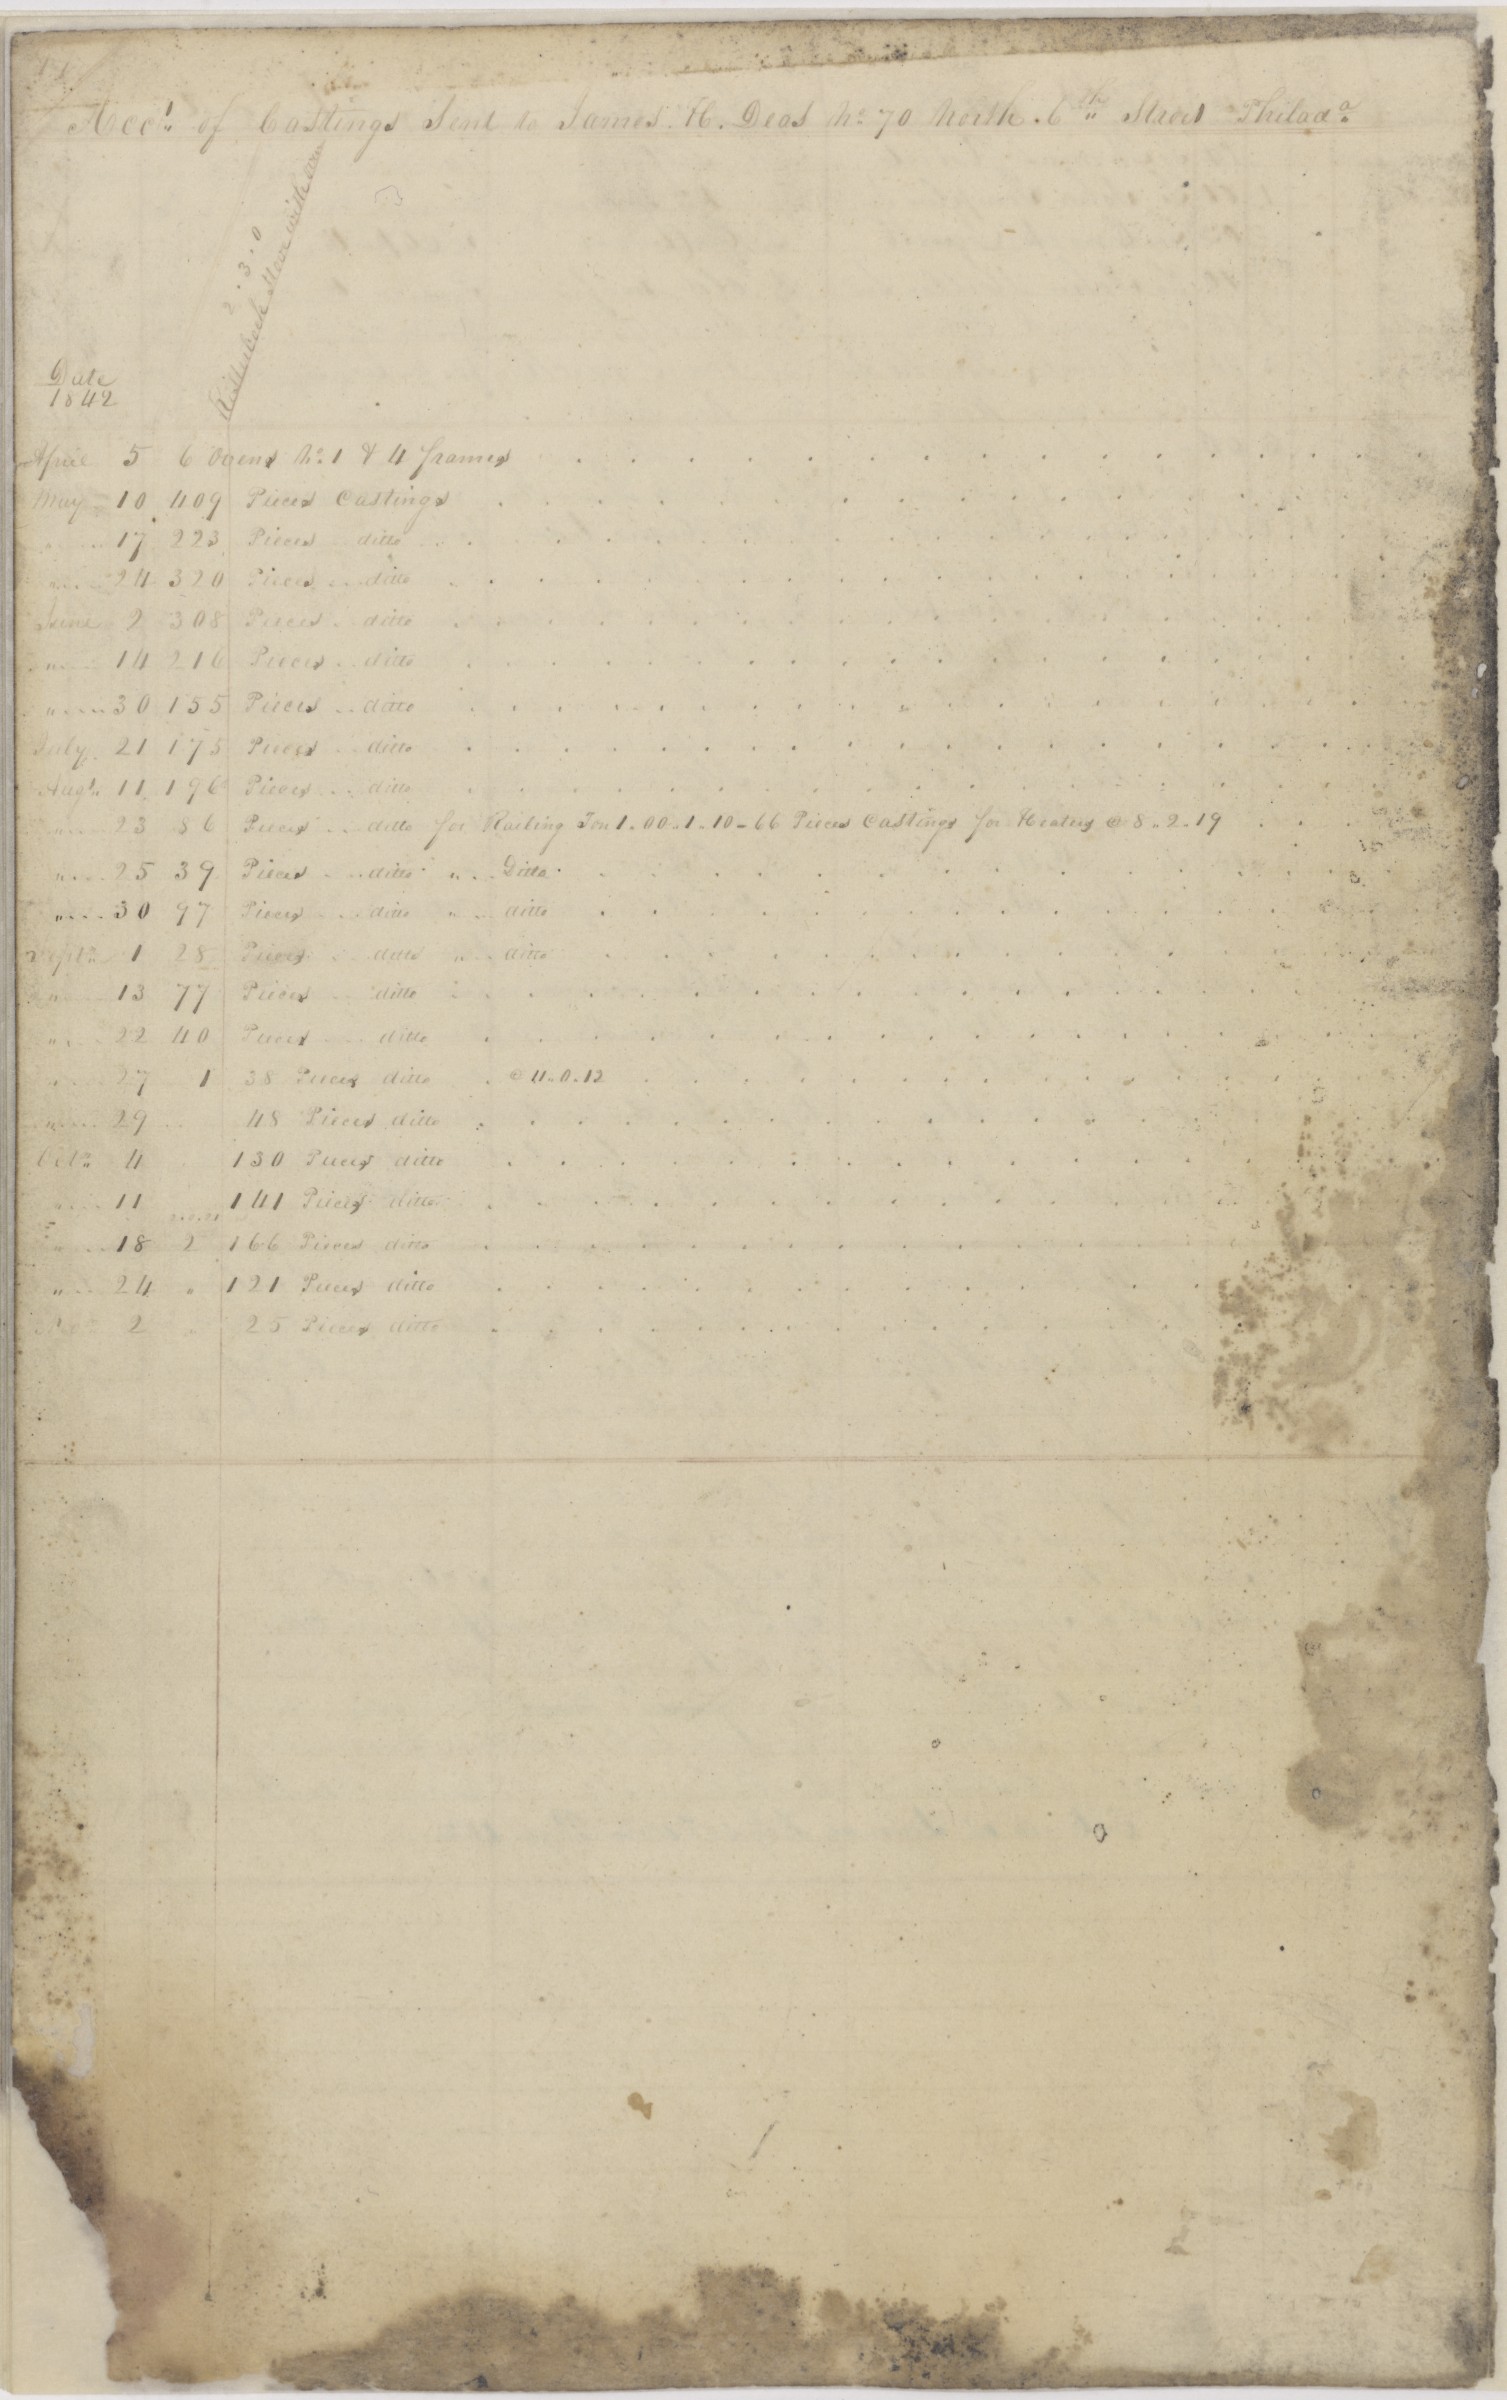 Acct. of Castings Sent to James. H. Deas No 70 North. 6th Street Philada.
2.3.0
Date
1842
April 5 6 Ovens No. 1 & 4 frames
May 10 409 Pieces Castings
" 17 223 Pieces ditto
" 24 320 Pieces ditto
June 2 308 Pieces ditto
" 14 216 Pieces ditto
" 30 155 Pieces ditto
July 21 175 Pieces ditto
Augt. 11 196 Pieces ditto
" 23 86 Pieces ditto for Railing Ton 1.00.1.10 - 66 Pieces Castings for Heaters @ 8.2.19
" 25 39 Pieces ditto " Ditto
" 30 97 Pieces ditto " ditto
Septr. 1 28 Pieces ditto " ditto
" 13 77 Pieces ditto
" 22 40 Pieces ditto
" 27 1 38 Pieces ditto @ 4.0.12
" 29 48 Pieces ditto
Octr. 4 130 Pieces ditto
" 11 141 Pieces ditto
" 18 2 166 Pieces ditto
" 24 " 121 Pieces ditto
Novr. 2 " 25 Pieces ditto